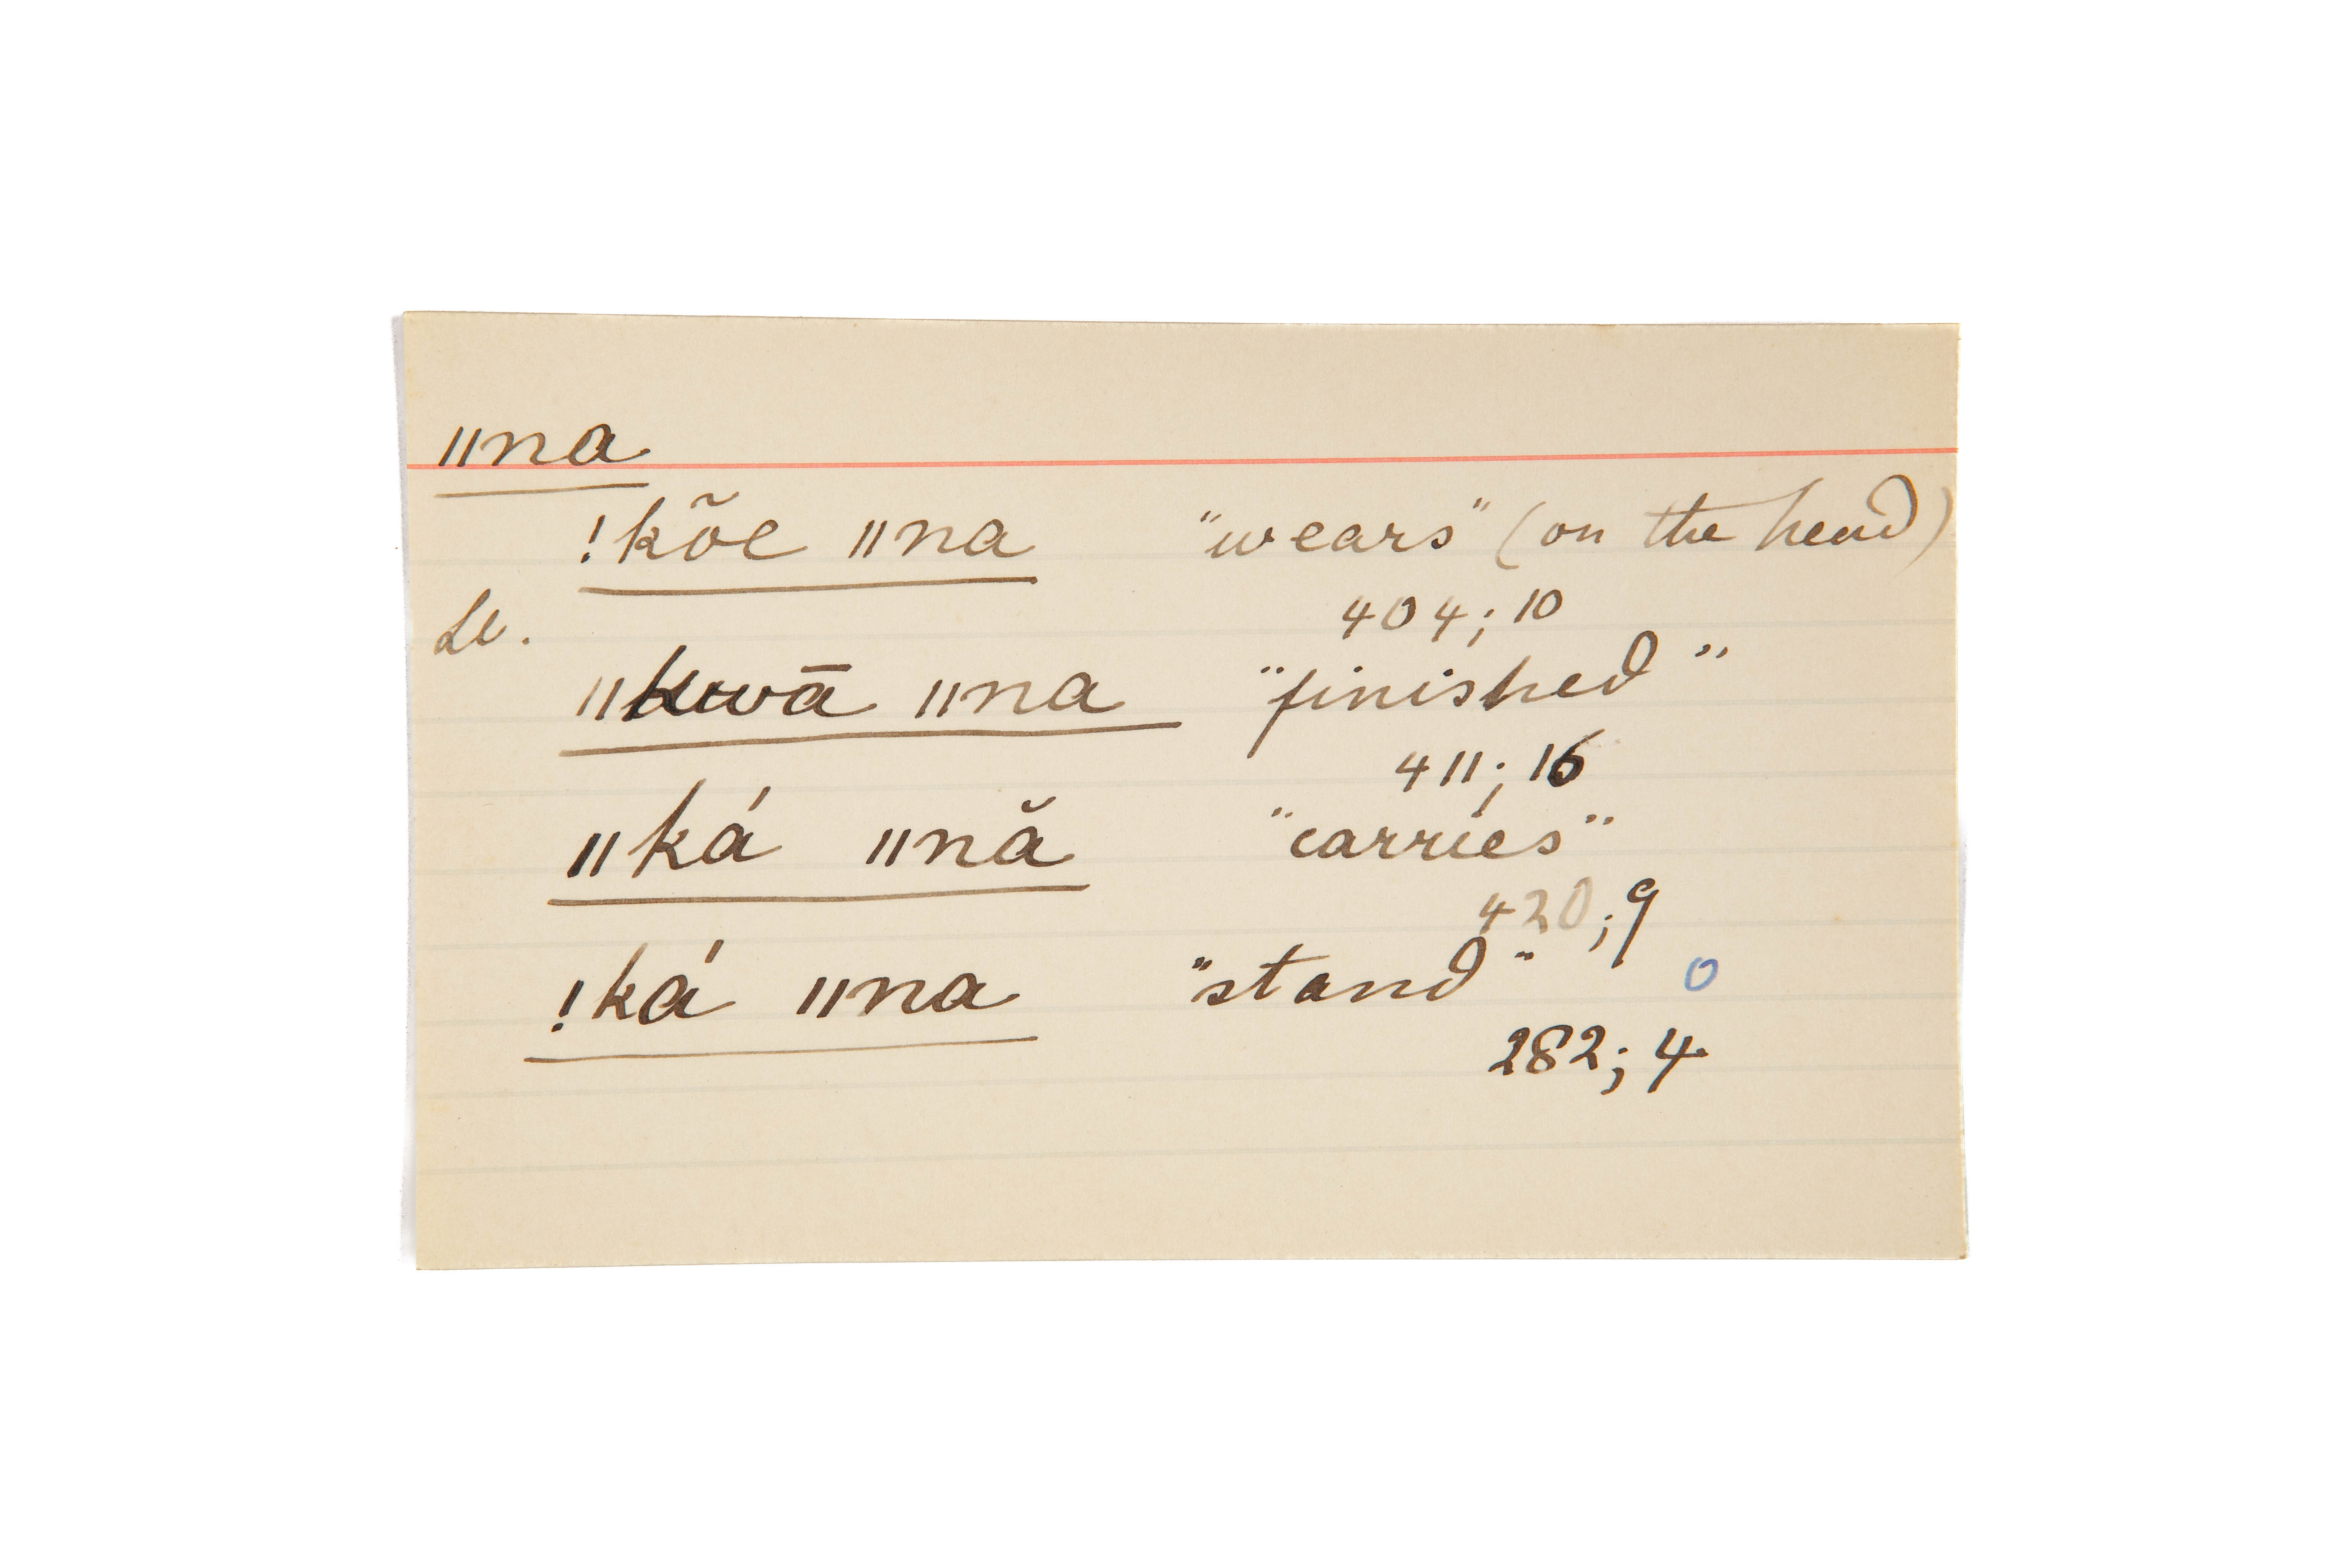 ǁna
!kõe ǁna "wears" (on the head)
404; 10
Le.
ǁkwā ǁna "finished"
411; 16
ǁká ǁnă "carries"
420; 9
!ká ǁna "stand" 0
282; 4